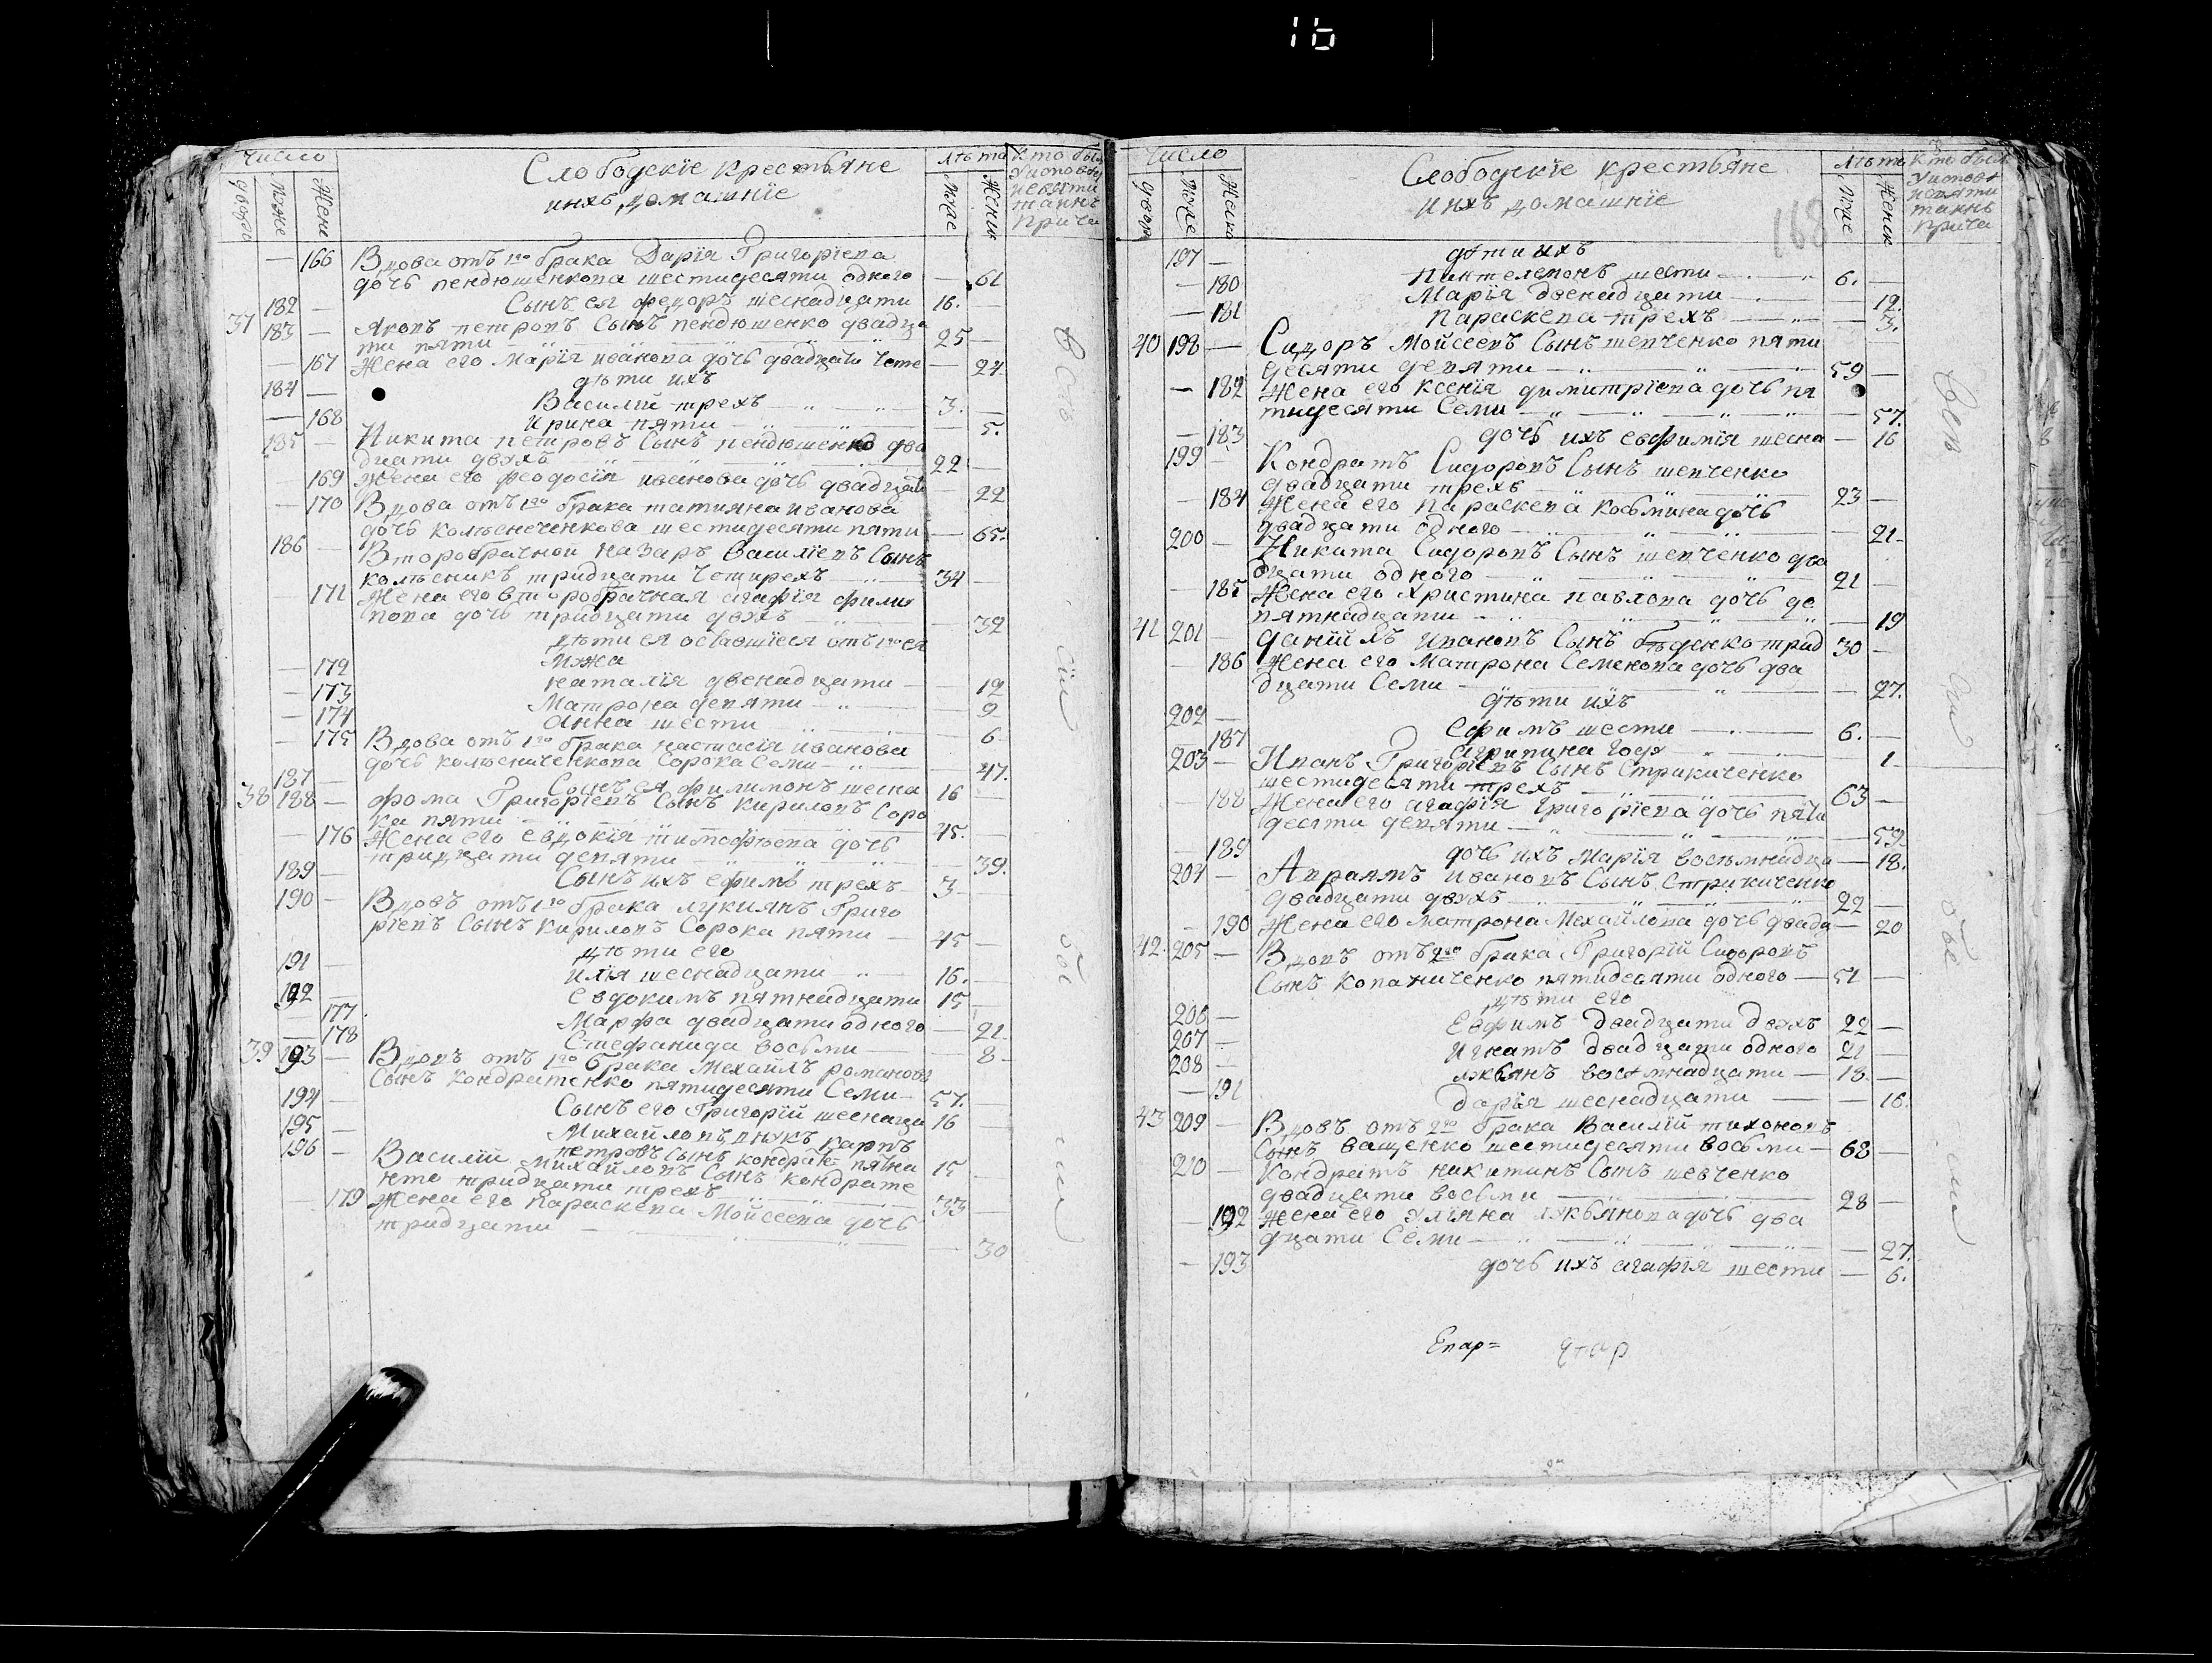 16
Число
Слободскїе крестьяне
инхъ домашнїе
Лѣта
Кто былъ
Уисповѣд
исвяти
таинъ
Прича
двора
Муже
Жене
Муже
Женск
166 Вдова отъ 1го брака Дарїя Григорїева
дочь пендюшенкова шестидесяти одного — 61
182 — Сынъ ея федоръ шеснадцати 16. —
37 183 — Яковъ петровъ Сынъ пендюшенко двадца
ти пяти 25 —
— 167 Жена его марїя иванова дочь двадцати чете — 24
дѣти ихъ
184 — Василїй трехъ 3. —
— 168 Ирина пяти — 5.
185 — Никита петровъ Сынъ пендюшенко два
дцати двухъ 22 —
— 169 Жена его феодосїя иванова дочь двадцати — 22
— 170 Вдова отъ 1го брака татияна иванова
дочь колѣсниченкова шестидесяти пяти — 65.
186 — Второбрачной Назаръ Василїевъ Сынъ
колѣсникъ тридцати четирехъ 34 —
— 171 Жена его второбрачная агафїя фили
пова дочь тридцати двухъ — 32
дѣти ея оставшїеся отъ 1го ея
мужа
— 172 наталїя двенадцати — 12
— 173 Матрона девяти — 9
— 174 Анна шести — 6
— 175 Вдова отъ 1го брака настасїя иванова
дочь колѣсниченкова Сорока Семи — 47.
187 — Сынъ ея филимонъ шесна 16 —
38 188 — фома Григорїевъ Сынъ кириловъ Соро
ка пяти 45. —
— 176 Жена его евдокїя тимофѣева дочь
тридцати девяти — 39.
189 — Сынъ ихъ ефимъ трехъ 3 —
190 — Вдовъ отъ 1го брака лукиянъ Григо
рїевъ Сынъ кириловъ Сорока пяти — 45 —
дѣти его
191 — илїя шеснадцати 16. —
192 — Евдокимъ пятнадцати 15 —
— 177. Марфа двадцати одного — 21.
— 178 Стефанида восьми — 8
39 193 — Вдовъ отъ 1го брака Михайлъ романовъ
Сынъ кондратенко пятидесяти Семи 57. —
194 — Сынъ его Григорїй шеснаца 16
195 — Михайловъ внукъ карпъ
петровъ Сынъ кондрат пятна 15
196 — Василїй михайловъ Сынъ кондрате
нко тридцати трехъ 33 —
— 179 Жена его Параскева Мойсеева дочь
тридцати — 30
Всѣ сїи бы ли
Число
Слободскїе крестьяне
Ихъ домашнїе
168
Лѣта
Кто былъ
Уисповѣ
исвяти
таинъ
Прича
двора
Муже
Женска
Муже
Женск
дѣти ихъ
197 — Пантелемонъ шести 6. —
— 180 Марїя двенадцати — 12.
— 181 Параскева трехъ — 3.
40 198 — Сидоръ Мойсеевъ Сынъ шевченко пяти
десяти девяти 59 —
— 182 Жена его Ксенїя димитрїева дочь пя
тидесяти Семи — 57.
— 183 дочь ихъ евфимїя шесна — 16
199 Кондратъ Сидоровъ Сынъ шевченко
двадцати трехъ 23 —
— 184 Жена его параскева козьмина дочь
двадцати одного — 21.
200 — Никита Сидоровъ Сынъ шевченко два
дцати одного 21 —
— 185 Жена его христина павлова дочь де
вятнадцати — 19
41 201 — данїилъ ивановъ Сынъ беденко трид 30 —
— 186 Жена его Матрона Семенова дочь два
дцати Семи — 27.
дѣти ихъ
202 — Ефимъ шести 6. —
187 агрипина году — 1
203 — Иванъ Григорїевъ Сынъ Стрикиченко
шестидесяти трехъ 63 —
— 188 Жена его агафїя григорїева дочь пяти
десяти девяти — 59.
— 189 дочь ихъ марїя восьмнадца — 18.
204 — Авраамъ ивановъ Сынъ Стрикиченко
двадцати двухъ 22 —
— 190 Жена его матрона михайлова дочь двадц — 20
42. 205 — Вдовъ отъ 2го брака Григорїй Сидоровъ
Сынъ Копаниченко пятидесяти одного — 51 —
дѣти его
206 — Евфимъ двадцати двухъ 22 —
207 — Игнатъ двадцати одного 21 —
208 — лукьянъ восѣмнадцати — 18. —
— 191 дарїя шеснадцати — 16.
43 209 — Вдовъ отъ 2го брака Василїй тихоновъ
Сынъ ващенко шестидесяти восьми — 68 —
210 — Кондратъ никитинъ Сынъ шевченко
двадцати восьми 28 —
— 192 Жена его улияна лукьянова дочь два
дцати Семи — 27.
— 193 дочь ихъ агафїя шести — 6.
Всѣ сїи бы ли
Епар=